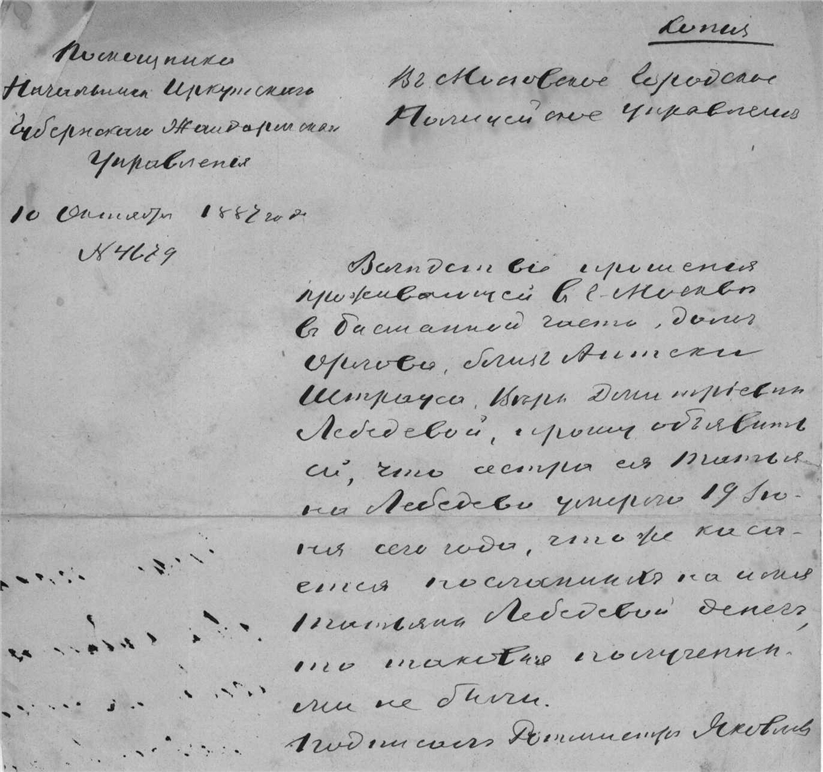 Копія
Помощника
Начальника Иркутскаго
Губернскаго Жандармскаго
Управленія
10 Октября 1887 года
№ 4679
Въ Московское Городское
Полицейское Управленіе
Вслѣдствіе прошенія
проживающей въ г. Москвѣ
въ Басманной части, домъ
Орлова, близъ Аптеки
Штрауса, Вѣры Дмитріевны
Лебедевой, прошу объявить
ей, что сестра ея Татья-
на Лебедева умерла 19 Iю-
ня сего года, что же каса-
ется посланныхъ на имя
Татьяны Лебедевой денегъ,
то таковые полученны-
ми не были.
Подписалъ Ротмистръ Яковлевъ